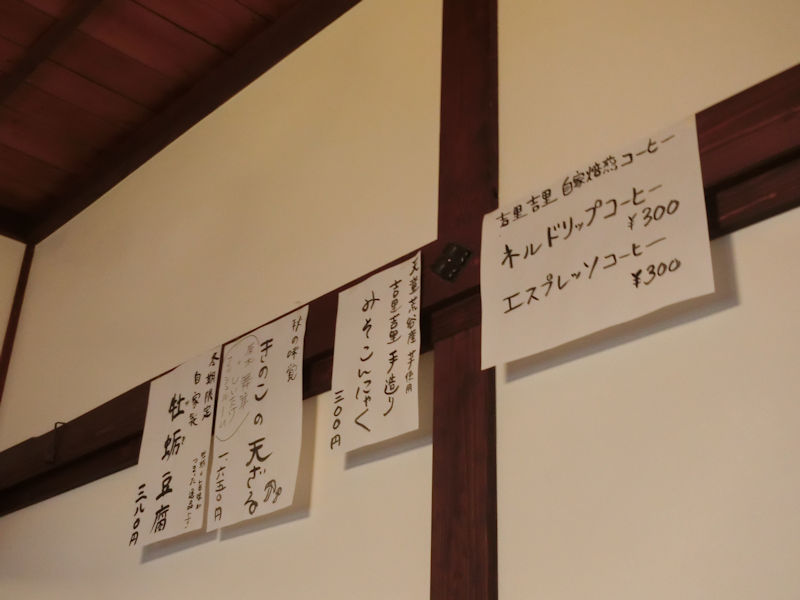 吉里吉里 自家焙煎コーヒー
ネルドリップコーヒー
¥300
エスプレッソコーヒー
¥300
天童荒谷産 芋使用
吉里吉里 手造り
みそこんにゃく
三〇〇円
秋の味覚
きのこの天ざる
原木 舞茸
しいたけ
一、六五〇円
冬期限定
自家製
牡蛎豆腐
三八〇円